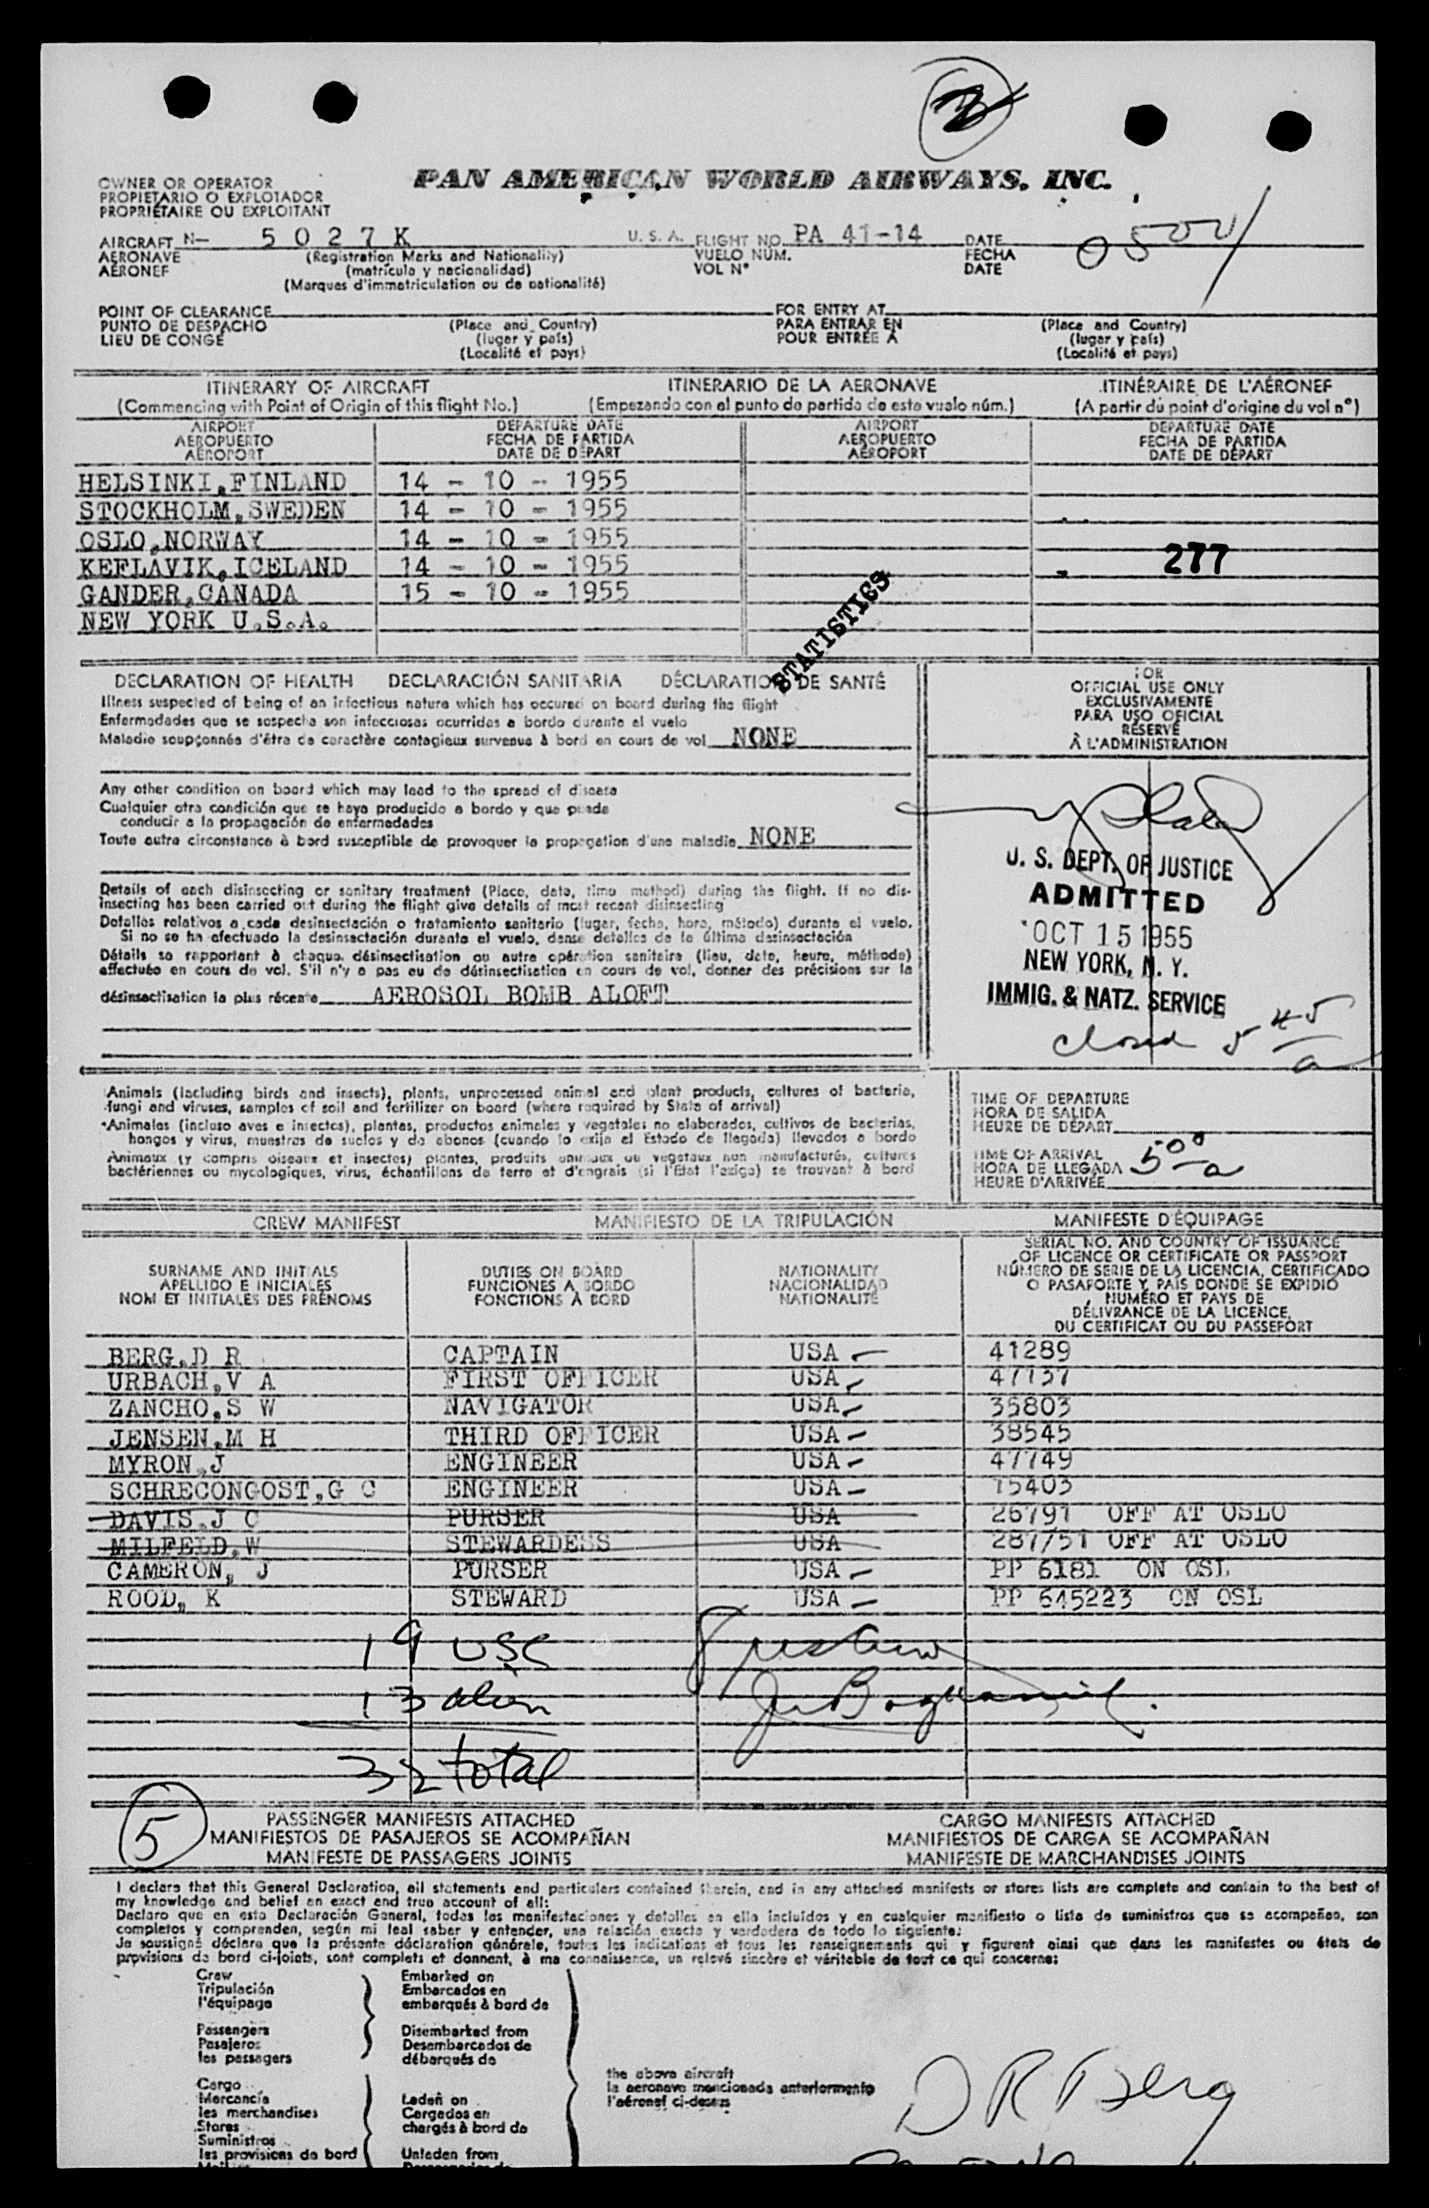 PAN AMERICAN WORLD AIRWAYS, INC.
OWNER OR OPERATOR
PROPIETARIO O EXPLOTADOR
PROPRIÉTAIRE OU EXPLOITANT
AIRCRAFT N— 5027K U.S.A. FLIGHT NO. PA 41-14 DATE
AERONAVE (Registration Marks and Nationality) VUELO NÚM. FECHA
AÉRONEF (matrícula y nacionalidad) VOL N° DATE
(Marques d'immatriculation ou de nationalité)
POINT OF CLEARANCE FOR ENTRY AT
PUNTO DE DESPACHO (Place and Country) PARA ENTRAR EN (Place and Country)
LIEU DE CONGÉ (lugar y país) POUR ENTRÉE À (lugar y país)
(Localité et pays) (Localité et pays)
ITINERARY OF AIRCRAFT ITINERARIO DE LA AERONAVE ITINÉRAIRE DE L'AÉRONEF
(Commencing with Point of Origin of this flight No.) (Empezando con el punto de partida de este vuelo núm.) (A partir du point d'origine du vol n°)
AIRPORT DEPARTURE DATE AIRPORT DEPARTURE DATE
AEROPUERTO FECHA DE PARTIDA AEROPUERTO FECHA DE PARTIDA
AÉROPORT DATE DE DÉPART AÉROPORT DATE DE DÉPART
HELSINKI,FINLAND 14 - 10 - 1955
STOCKHOLM,SWEDEN 14 - 10 - 1955
OSLO,NORWAY 14 - 10 - 1955
KEFLAVIK,ICELAND 14 - 10 - 1955 277
GANDER,CANADA 15 - 10 - 1955
NEW YORK U.S.A.
STATISTICS
DECLARATION OF HEALTH DECLARACIÓN SANITARIA DÉCLARATION DE SANTÉ
Illness suspected of being of an infectious nature which has occured on board during the flight
Enfermedades que se sospecha son infecciosas ocurridas a bordo durante el vuelo
Maladie soupçonnée d'être de caractère contagieux survenue à bord en cours de vol NONE
Any other condition on board which may lead to the spread of disease
Cualquier otra condición que se haya producido a bordo y que pueda
conducir a la propagación de enfermedades
Toute autre circonstance à bord susceptible de provoquer la propagation d'une maladie NONE
Details of each disinsecting or sanitary treatment (Place, date, time method) during the flight. If no dis-
insecting has been carried out during the flight give details of most recent disinsecting
Detalles relativos a cada desinsectación o tratamiento sanitario (lugar, fecha, hora, método) durante el vuelo.
Si no se ha efectuado la desinsectación durante el vuelo, dense detalles de la última desinsectación
Détails se rapportant à chaque désinsectisation ou autre opération sanitaire (lieu, date, heure, méthode)
effectuée en cours de vol. S'il n'y a pas eu de désinsectisation en cours de vol, donner des précisions sur la
désinsectisation la plus récente AEROSOL BOMB ALOFT
FOR
OFFICIAL USE ONLY
EXCLUSIVAMENTE
PARA USO OFICIAL
RÉSERVÉ
À L'ADMINISTRATION
U. S. DEPT. OF JUSTICE
ADMITTED
OCT 15 1955
NEW YORK, N. Y.
IMMIG. & NATZ. SERVICE
closed 5 45 a
Animals (Including birds and insects), plants, unprocessed animal and plant products, cultures of bacteria,
fungi and viruses, samples of soil and fertilizer on board (where required by State of arrival)
Animales (incluso aves e insectos), plantas, productos animales y vegetales no elaborados, cultivos de bacterias,
hongos y virus, muestras de suelos y de abonos (cuando lo exija el Estado de llegada) llevados a bordo
Animaux (y compris oiseaux et insectes) plantes, produits animaux ou vegetaux non manufacturés, cultures
bactériennes ou mycologiques, virus, échantillons de terre et d'engrais (si l'État l'exige) se trouvant à bord
TIME OF DEPARTURE
HORA DE SALIDA
HEURE DE DÉPART
TIME OF ARRIVAL
HORA DE LLEGADA 5 00 a
HEURE D'ARRIVÉE
CREW MANIFEST MANIFIESTO DE LA TRIPULACIÓN MANIFESTE D'ÉQUIPAGE
SURNAME AND INITIALS
APELLIDO E INICIALES
NOM ET INITIALES DES PRÉNOMS
DUTIES ON BOARD
FUNCIONES A BORDO
FONCTIONS À BORD
NATIONALITY
NACIONALIDAD
NATIONALITÉ
SERIAL NO. AND COUNTRY OF ISSUANCE
OF LICENCE OR CERTIFICATE OR PASSPORT
NÚMERO DE SERIE DE LA LICENCIA, CERTIFICADO
O PASAPORTE Y PAÍS DONDE SE EXPIDIÓ
NUMÉRO ET PAYS DE
DÉLIVRANCE DE LA LICENCE,
DU CERTIFICAT OU DU PASSEPORT
BERG,D R CAPTAIN USA 41289
URBACH,V A FIRST OFFICER USA 47137
ZANCHO,S W NAVIGATOR USA 35803
JENSEN,M H THIRD OFFICER USA 38545
MYRON,J ENGINEER USA 47749
SCHRECONGOST,G C ENGINEER USA 15403
DAVIS,J C PURSER USA 26791 OFF AT OSLO
MILFELD,W STEWARDESS USA 287/51 OFF AT OSLO
CAMERON, J PURSER USA PP 6181 ON OSL
ROOD, K STEWARD USA PP 645223 ON OSL
19 USC
13 alien
32 total
5
PASSENGER MANIFESTS ATTACHED CARGO MANIFESTS ATTACHED
MANIFIESTOS DE PASAJEROS SE ACOMPAÑAN MANIFIESTOS DE CARGA SE ACOMPAÑAN
MANIFESTE DE PASSAGERS JOINTS MANIFESTE DE MARCHANDISES JOINTS
I declare that this General Declaration, all statements and particulars contained therein, and in any attached manifests or stores lists are complete and contain to the best of
my knowledge and belief an exact and true account of all:
Declaro que en esta Declaración General, todas las manifestaciones y detalles en ella incluídos y en cualquier manifiesto o lista de suministros que se acompañen, son
completos y comprenden, según mi leal saber y entender, una relación exacta y verdadera de todo lo siguiente:
Je soussigné déclare que la présente déclaration générale, toutes les indications et tous les renseignements qui y figurent ainsi que dans les manifestes ou états de
provisions de bord ci-joints, sont complets et donnent, à ma connaissance, un relevé sincère et véritable de tout ce qui concerne:
Crew Embarked on
Tripulación Embarcados en
l'équipage embarqués à bord de
Passengers Disembarked from
Pasajeros Desembarcados de
les passagers débarqués de
the above aircraft
la aeronave mencionada anteriormente
l'aéronef ci-dessus
Cargo
Mercancía Laden on
les merchandises Cargados en
Stores chargés à bord de
Suministros
les provisions de bord Unladen from
D R Berg